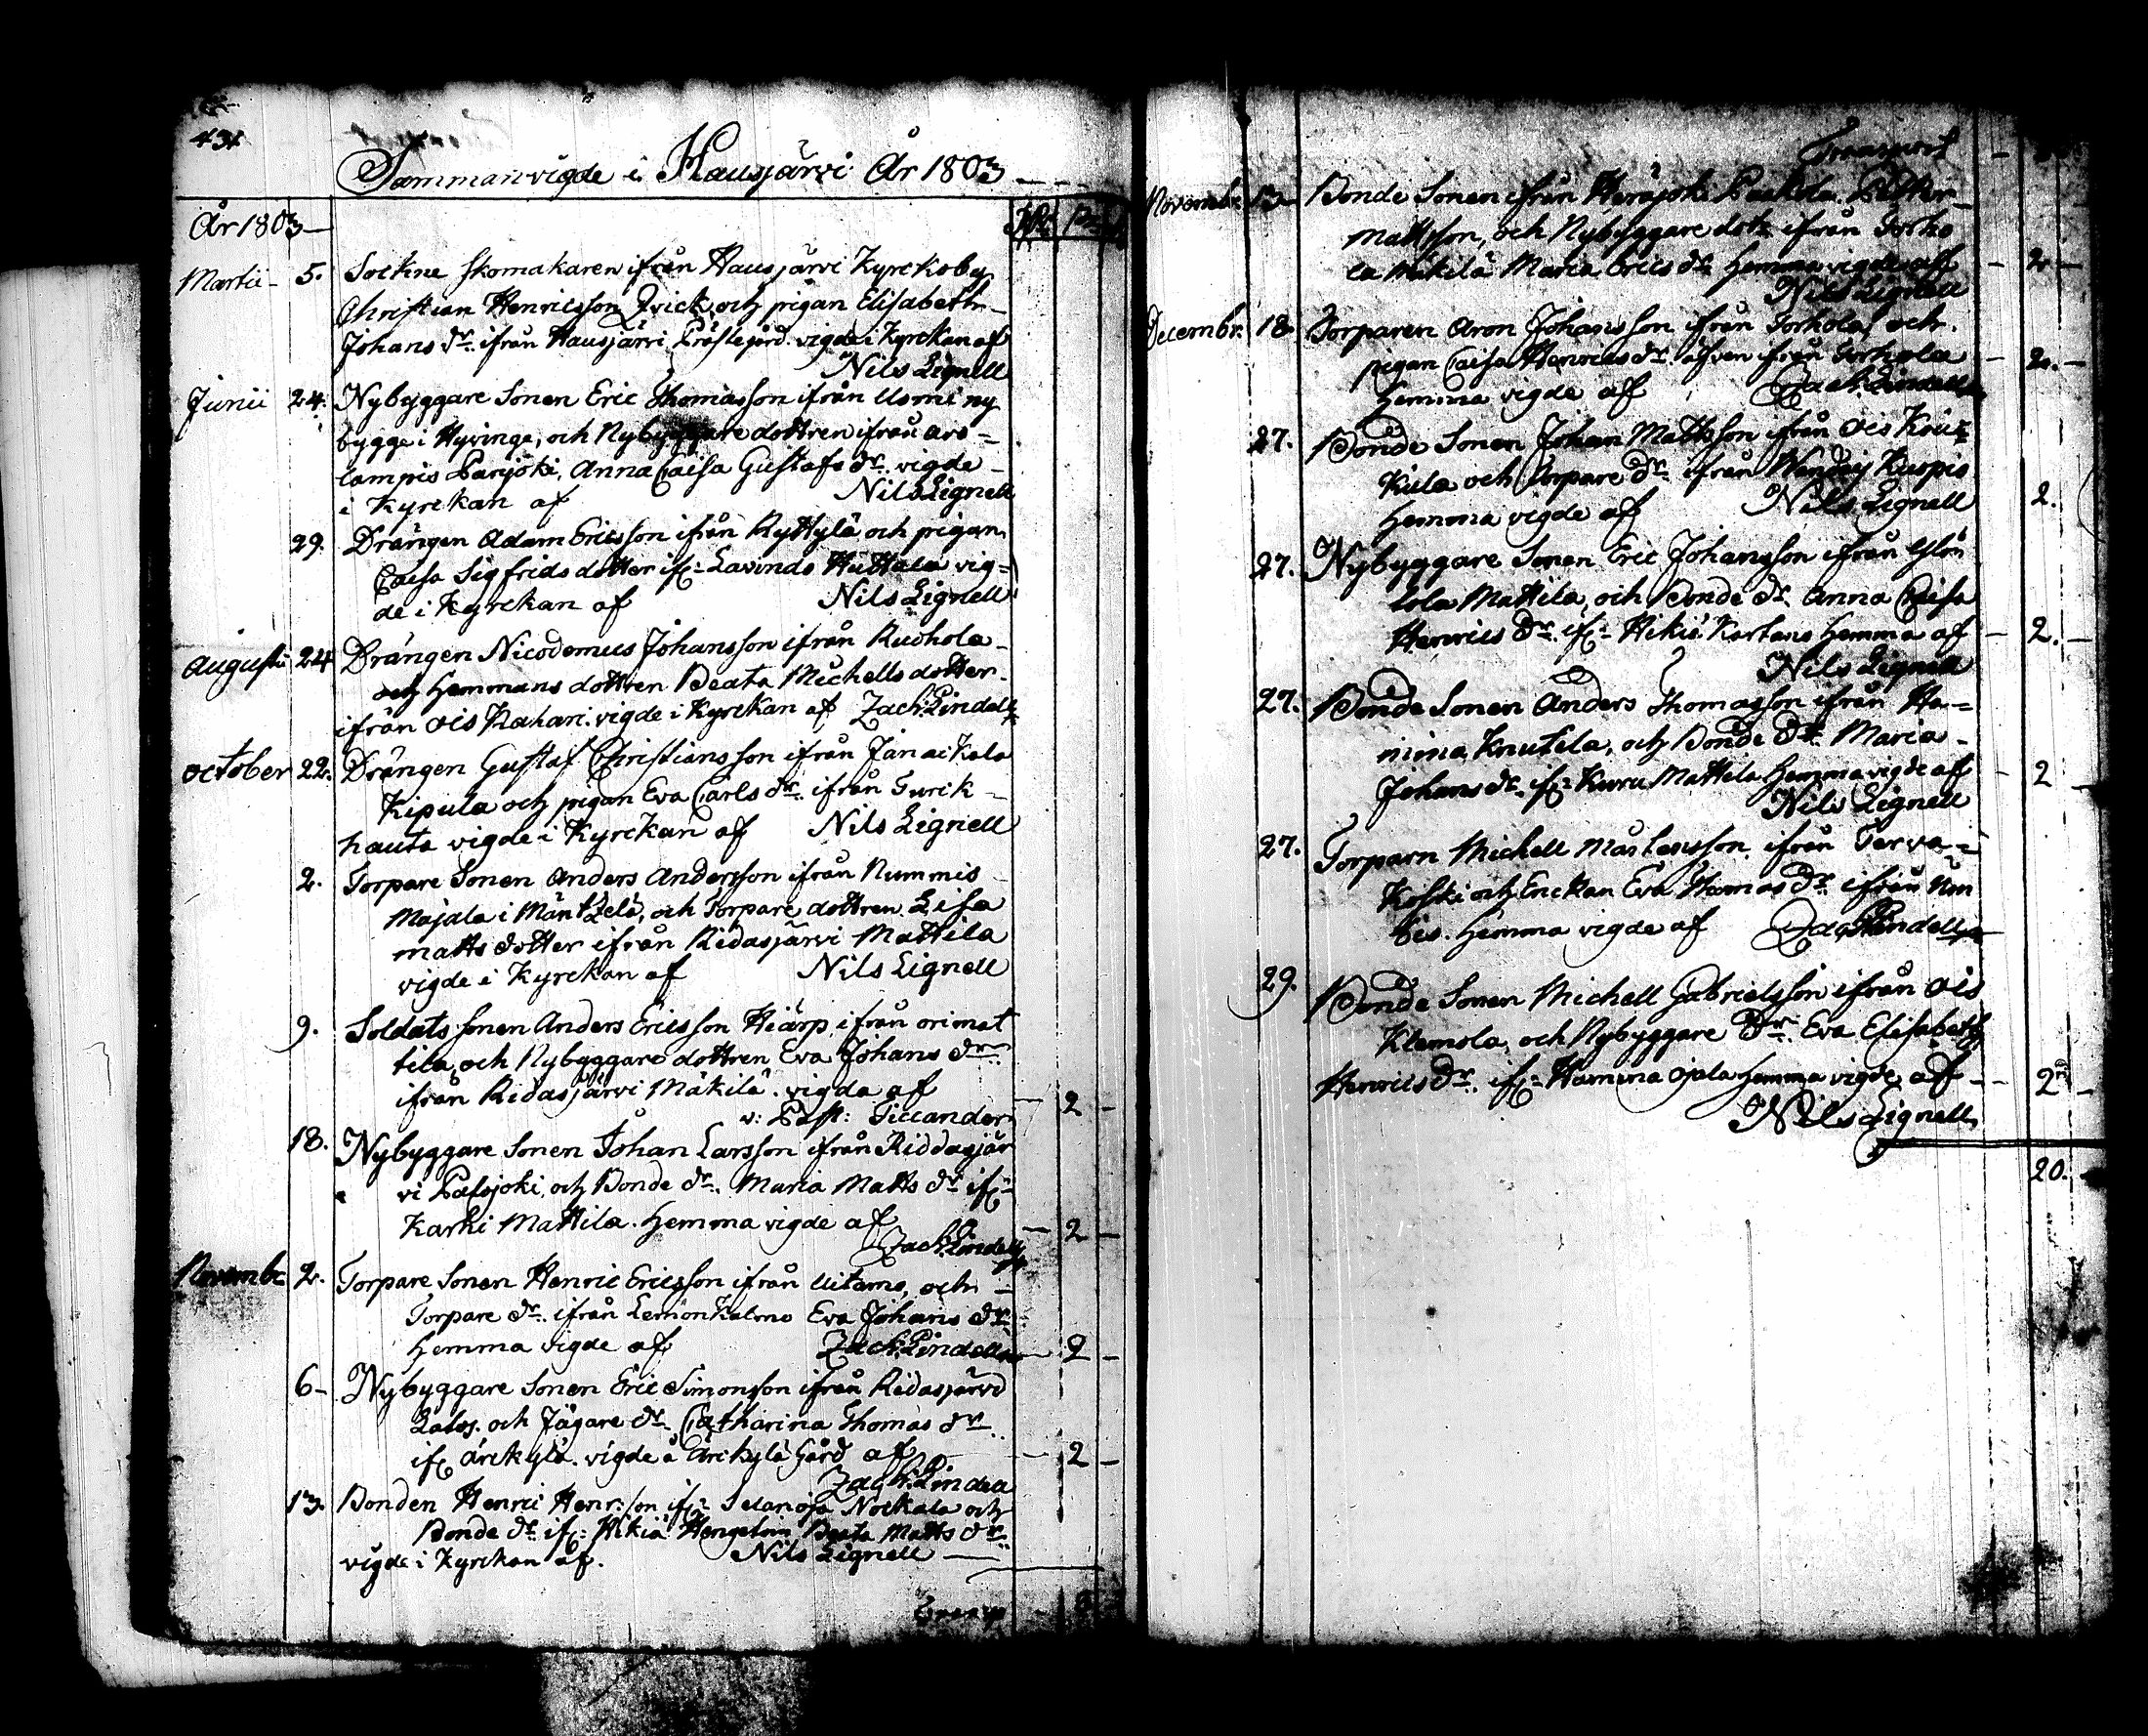 431
Sammanvigde i Hausjärvi År 1803
År 1803
Martii 5. Sockne skomakaren ifrån Hausjärvi Kyrckoby
Christian Henricsson Qvick, och pigan Elisabeth
Johans dr. ifrån Hausjärvi Prästegård. vigde i Kyrckan af
Nils Lignell
Junii 24. Nybyggare Sonen Eric Thomasson ifrån Usmi ny
bygge i Hyvinge, och Nybyggare dottren ifrån aro=
lampis Parjoki, Anna Caisa Gustafs dr. vigde
i Kyrckan af Nils Lignell
29. Drängen Adam Ericsson ifrån Ryttylä och pigan
Caisa Sigfrids dotter ifr: Lavinds Huttala vig=
de i Kyrckan af Nils Lignell
Augusti 24 Drängen Nicodemus Johansson ifrån Ruohola
och Hemmans dottren Beata Michells dotter
ifrån Ois Rahari. vigde i Kyrckan af Zach: Lindell
October 22. Drängen Gustaf Christiansson ifrån Janackala
Kipula och pigan Eva Carls dr. ifrån Turck
hauta vigde i Kyrckan af Nils Lignell
2. Torpare Sonen Anders Andersson ifrån Nummis
Majala i Mäntzelä, och Torpare dottren Lisa
Matts dotter ifrån Ridasjärvi Mattila
vigde i Kyrckan af Nils Lignell
9. Soldats sonen Anders Ericsson Hiärp ifrån orimat
tila, och Nybyggare dottren Eva Johans dr.
ifrån Ridasjärvi Mäkilä. vigda af
v: Past: Ticcander 2
18. Nybyggare Sonen Johan Larsson ifrån Riddasjär
vi Palsjoki, och Bonde dr. Maria Matts dr ifr:
Karhi Mattila. Hemma vigde af 2
Zach: Lindell
Novembr 2. Torpare Sonen Henric Ericsson ifrån Uitamo, och
Torpare dr. ifrån Lemonkalmo Eva Johans dr.
Hemma vigde af Zach: Lindell 2
6 Nybyggare Sonen Eric Simonsson ifrån Ridasjärvi
och Jägare dr. Catharina Thomas dr.
ifr Arckylä. vigde å Arckylä Gård af 2
Zach: Lindell
13. Bonden Henric Henr:son ifr: Selänoja Nockala och
Bonde dr. ifr: Hikiä Beata Matts dr.
vigde i Kyrckan af. Nils Lignell
Transp
Transport
Novembr. 13 Bonde Sonen ifrån Heräjoki Paskila Petter
Mattsson, och Nybyggare dotr ifrån Torho
la Mäkilä Maria Erics dr. Hemma vigde af 2
Nils Lignell
Decembr. 18 Torparen Aron Johansson ifrån Torhola, och
pigan Caisa Henrics dr. äfven ifrån Torhola 2.
Hemma vigde af Zach: Lindell
27. Bonde Sonen Johan Mattsson ifrån Ois
Kula och Torpare dr. ifrån
Hemma vigde af Nils Lignell 2.
27. Nybyggare Sonen Eric Johansson ifrån
lola Mattila, och Bonde dr. Anna Caisa
Henrics dr. ifr: Hikiä Kartano Hemma af 2.
Nils Lignell
27. Bonde Sonen Anders Thomasson ifrån Ha=
mina Knutila, och Bonde dr. Maria
Johans dr. ifr: Kuru Mattela Hemma vigde af 2
Nils Lignell
27. Torparn Michell Mårtensson ifrån Terva=
koski och Enckan Eva Thomas dr. ifrån Um
bis. Hemma vigde af Zach: Lindell
29. Bonde Sonen Michell Gabrielsson ifrån Ois
Klemola, och Nybyggare dr. Eva Elisabeth
Henrics dr. ifr: Hamina Ojala Hemma vigde af 2
Nils Lignell
20.